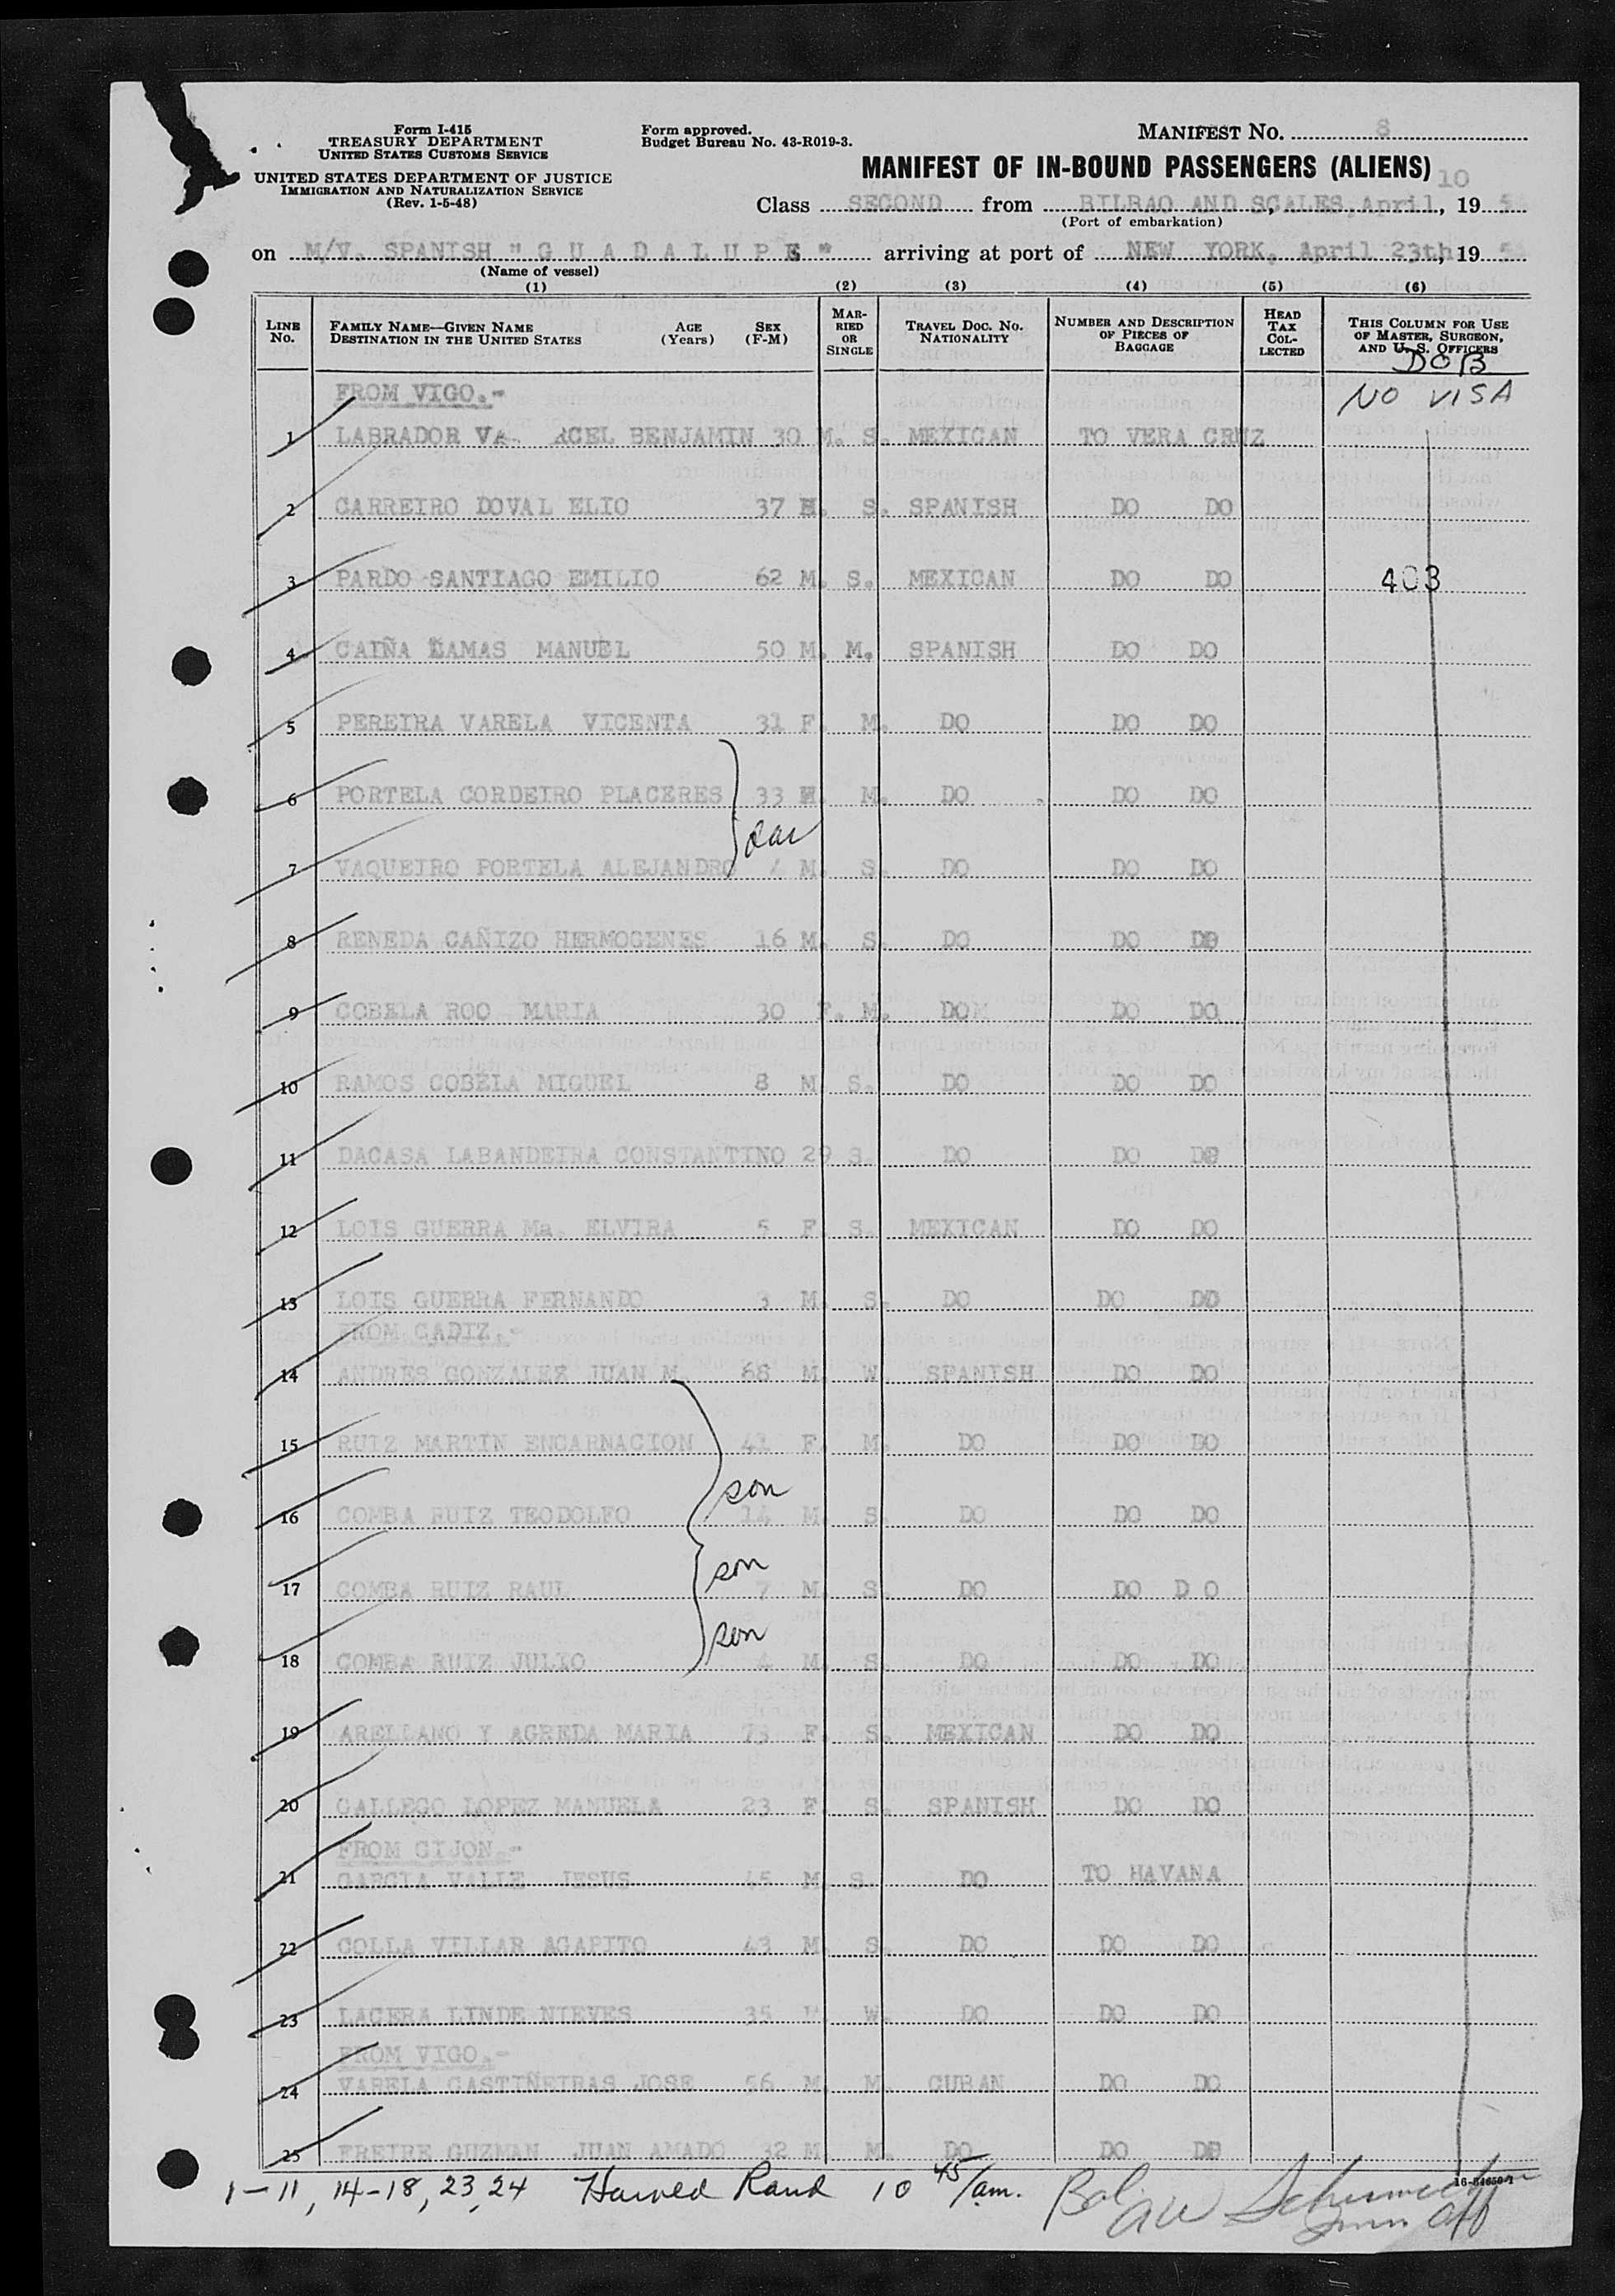 Form I-415
TREASURY DEPARTMENT
UNITED STATES CUSTOMS SERVICE
UNITED STATES DEPARTMENT OF JUSTICE
IMMIGRATION AND NATURALIZATION SERVICE
(Rev. 1-5-48)
Form approved.
Budget Bureau No. 43-R019-3.
MANIFEST No. 8
MANIFEST OF IN-BOUND PASSENGERS (ALIENS)
10
Class SECOND from BILBAO AND SCALES, April, 19 5
(Port of embarkation)
on M/V. SPANISH "G U A D A L U P E" arriving at port of NEW YORK, April 23th, 19 5
(Name of vessel)
(1) (2) (3) (4) (5) (6)
LINE No. FAMILY NAME—GIVEN NAME DESTINATION IN THE UNITED STATES AGE (Years) SEX (F-M) MARRIED OR SINGLE TRAVEL DOC. NO. NATIONALITY NUMBER AND DESCRIPTION OF PIECES OF BAGGAGE HEAD TAX COLLECTED THIS COLUMN FOR USE OF MASTER, SURGEON, AND U. S. OFFICERS
DOB
FROM VIGO.- NO VISA
1 LABRADOR BENJAMIN 30 M. S. MEXICAN TO VERA CRUZ
2 CARREIRO DOVAL ELIO 37 S. SPANISH DO DO
3 PARDO SANTIAGO EMILIO 62 M. S. MEXICAN DO DO 403
4 CAIÑA LAMAS MANUEL 50 M. M. SPANISH DO DO
5 PEREIRA VARELA VICENTA 31 F. M. DO DO DO
6 PORTELA CORDEIRO PLACERES 33 M. DO DO DO
7 VAQUEIRO PORTELA ALEJANDRO M. S. DO DO DO
8 RENEDA CAÑIZO HERMOGENES 16 M. S. DO DO DO
9 COBELA ROO MARIA 30 F. M. DO DO DO
10 RAMOS COBELA MIGUEL 8 M S. DO DO DO
11 DACASA LABANDEIRA CONSTANTINO 29 S. DO DO DO
12 LOIS GUERRA Ma. ELVIRA 5 F S. MEXICAN DO DO
13 LOIS GUERRA FERNANDO 3 M S. DO DO DO
FROM CADIZ.-
14 ANDRES GONZALEZ JUAN M. 68 M W. SPANISH DO DO
15 RUIZ MARTIN ENCARNACION 41 F. M. DO DO DO
16 COMBA RUIZ TEODOLFO son 14 M. S. DO DO DO
17 COMBA RUIZ RAUL son 7 M. S. DO DO D O
18 COMBA RUIZ JULIO son 4 M. S. DO DO DO
19 ARELLANO Y AGREDA MARIA 73 F. S. MEXICAN DO DO
20 GALLEGO LOPEZ MANUELA 23 F S. SPANISH DO DO
FROM GIJON.-
21 GARCIA VALLE JESUS 45 M S. DO TO HAVANA
22 COLLA VILLAR AGAPITO 43 M S. DO DO DO
23 LACERA LINDE NIEVES 35 W. DO DO DO
FROM VIGO.-
24 VARELA CASTIÑEIRAS JOSE 56 M. M. CUBAN DO DO
25 FREIRE GUZMAN JUAN AMADO 32 M M. DO DO DO
1-11, 14-18, 23, 24 10 45/am.